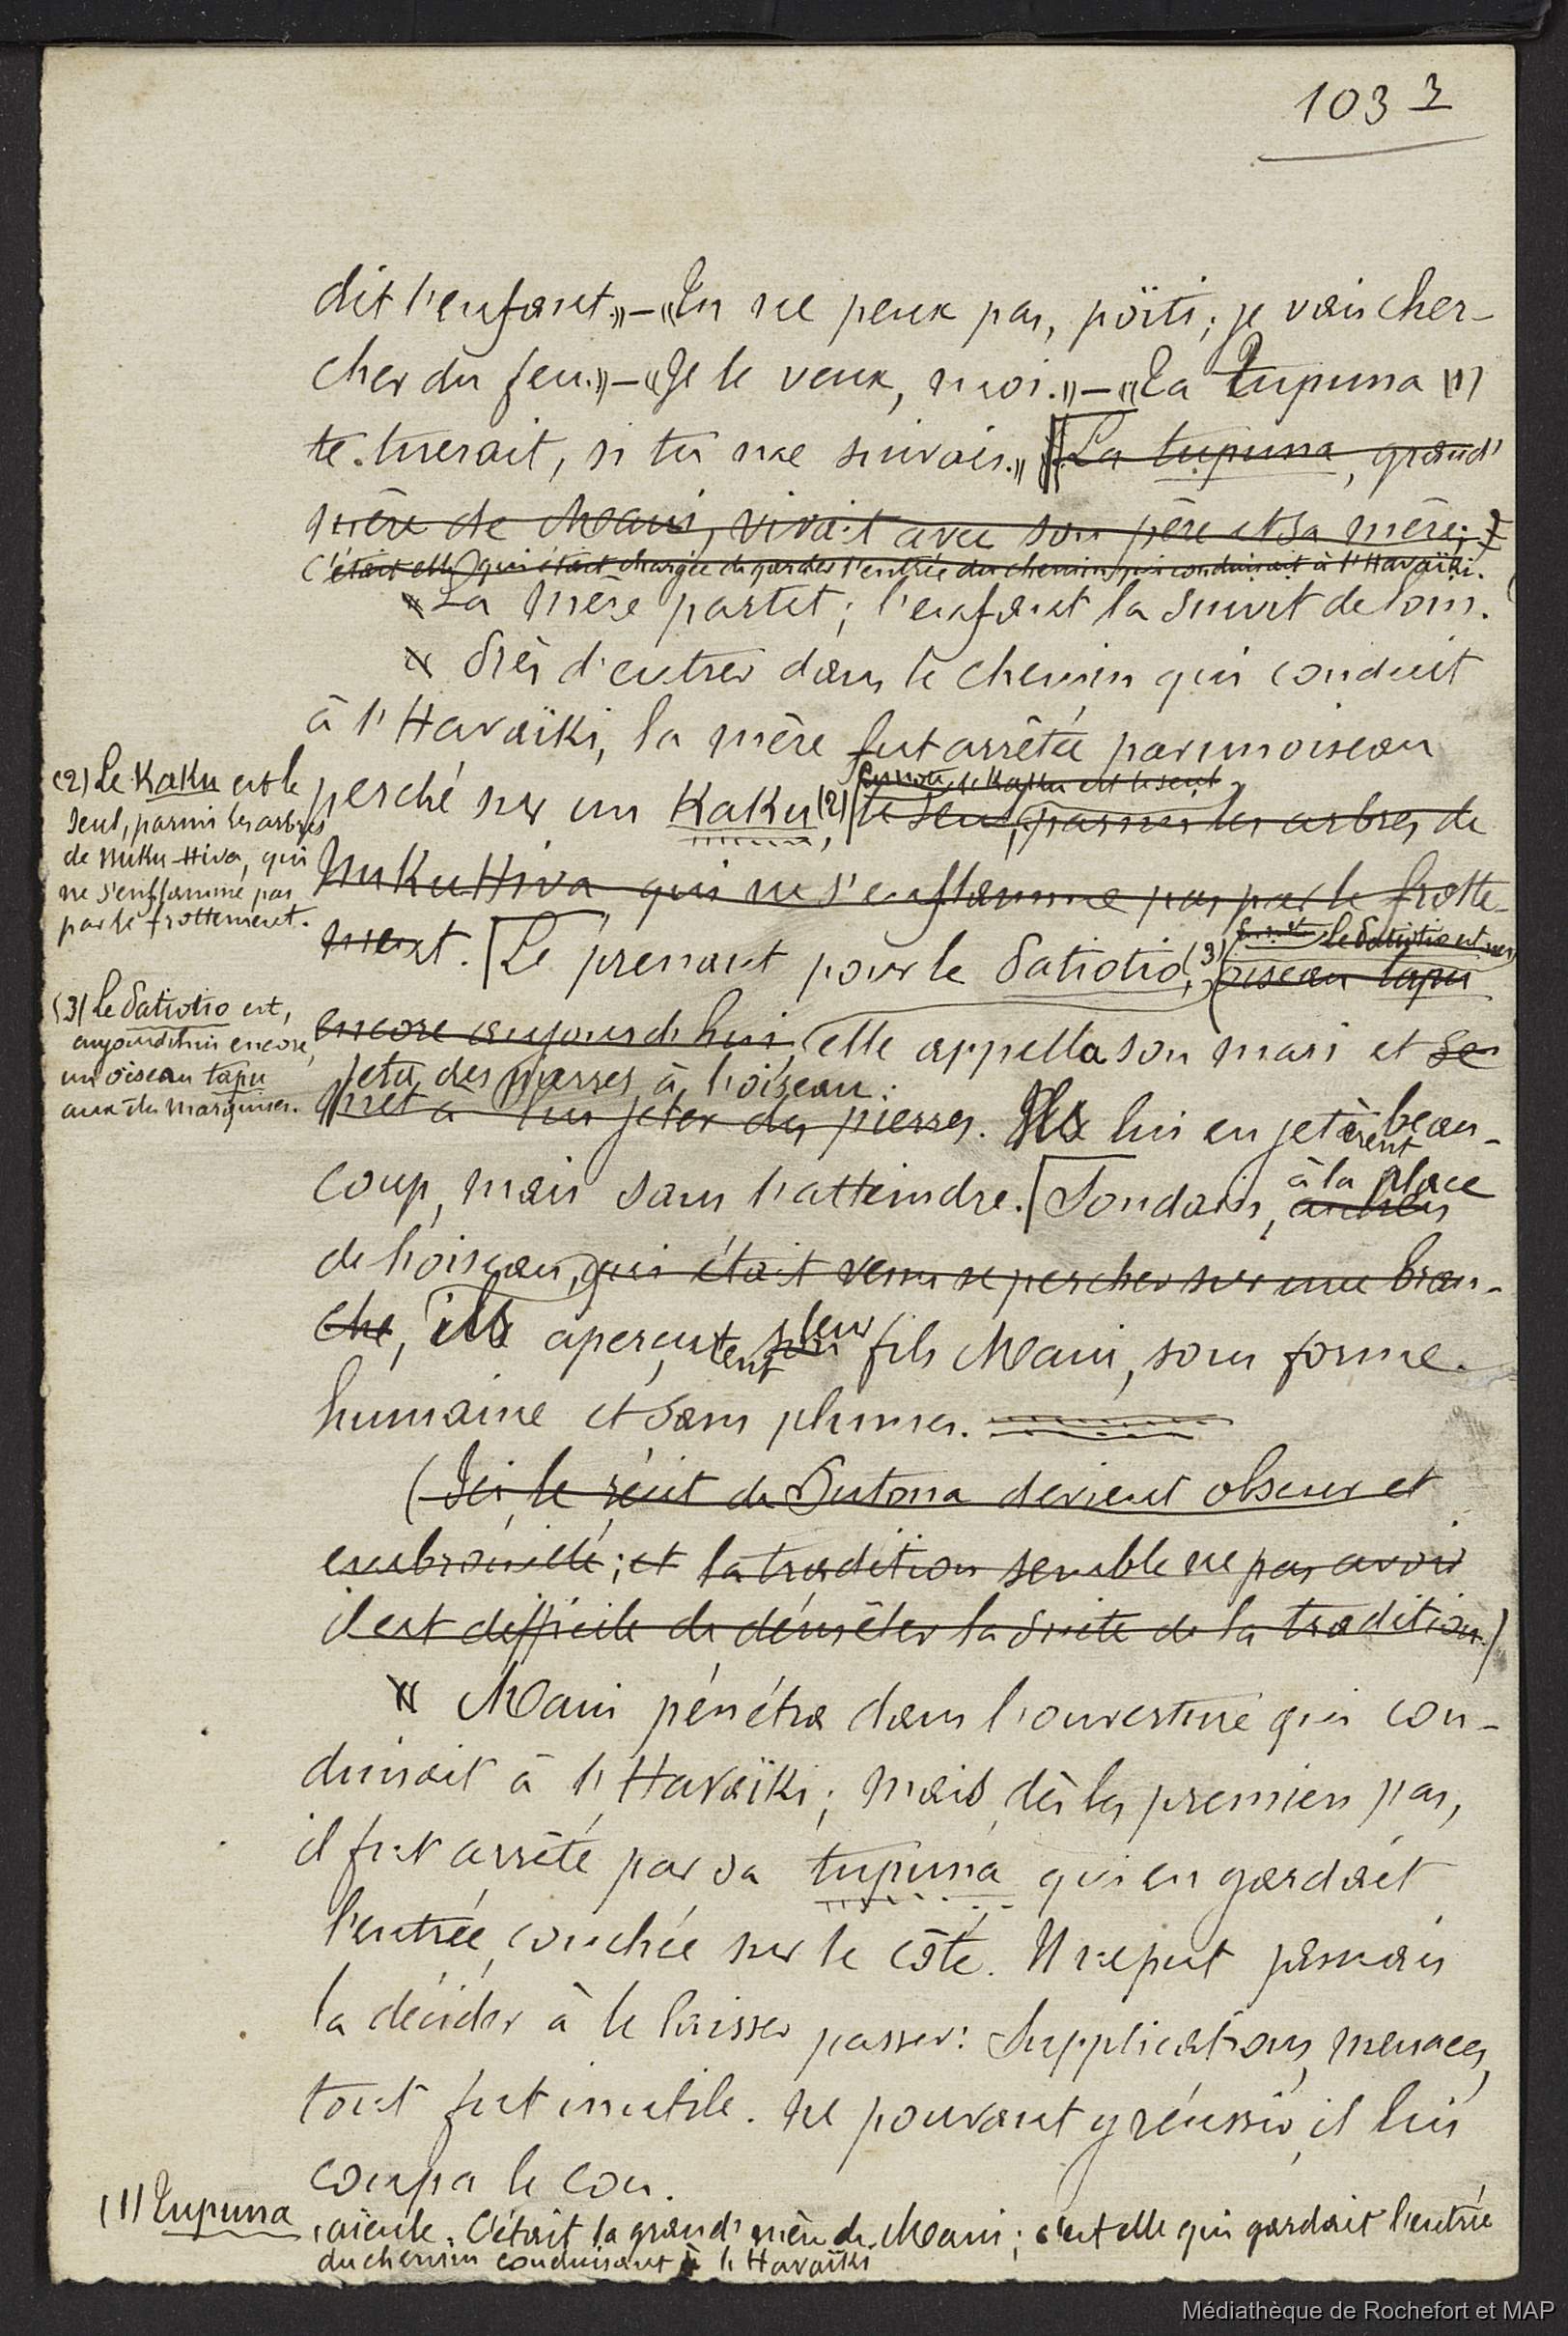 103 3
dit l'enfant.» — «Tu ne peux pas, pöïti; je vais cher-
cher du feu.» — «Je le veux, moi.» — «Ta Tupuna (1)
te tuerait, si tu me suivais.» La tupuna, grand'
mère de Maui, vivait avec son père et sa mère;
C'était elle qui était chargée de garder l'entrée du chemin qui conduisait à l'Havaïki.
« La mère partit; l'enfant la suivit de loin.
« Près d'entrer dans le chemin qui conduit
à l'Havaïki, la mère fut arrêtée par un oiseau
le Kaku est le seul
perché sur un Kaku (2), le seul, parmi les arbres de
Nuku Hiva qui ne s'enflamme pas par le frotte-
le Patiotio est un
ment. Le prenant pour le Patiotio (3), oiseau tapu
encore aujourd'hui, elle appella son mari et se
jeta des pierres à l'oiseau:
mit à lui jeter des pierres. Ils lui en jetèrent beau-
coup, mais sans l'atteindre. Soudain, à la place
de l'oiseau, qui était venu se percher sur une bran-
che, ils aperçurent son leur fils Maui, sous forme
humaine et sans plumes.
(Ici, le récit de devient obscur et
embrouillé; et la tradition semble ne pas avoir
il est difficile de démêler la suite de la tradition.)
« Maui pénétra dans l'ouverture qui con-
duisait à l'Havaïki; mais, dès les premiers pas,
il fut arrêté par sa tupuna qui en gardait
l'entrée, couchée sur le côté. Il ne put jamais
la décider à le laisser passer: Supplications, menaces,
tout fut inutile. Ne pouvant y réussir, il lui
coupa le cou.
(2) Le Kaku est le
seul, parmi les arbres
de Nuku-Hiva, qui
ne s'enflamme pas
par le frottement.
(3) Le Patiotio est,
aujourd'hui encore,
un oiseau tapu
aux îles Marquises.
(1) Tupuna, aïeule. C'était la grand'mère de Maui; c'est elle qui gardait l'entrée
du chemin conduisant à l'Havaïki
Médiathèque de Rochefort et MAP